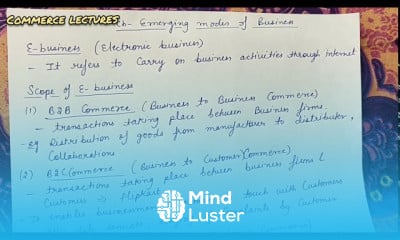 COMMERCE LECTURES
Ch- Emerging modes of Business
E-business (Electronic business)
- It refers to Carry on business activities through internet
Scope of E-business
(1) B2B Commerce (Business to Business Commerce)
- transactions taking place between Business firms.
- eg Distribution of goods from manufacturer to distributor,
Collaborations
(2) B2C Commerce (Business to Customer Commerce)
- transactions taking place between business firms &
Customers → Flipkart
→ enables businessman touch with Customers
by Customer
Mind
Luster